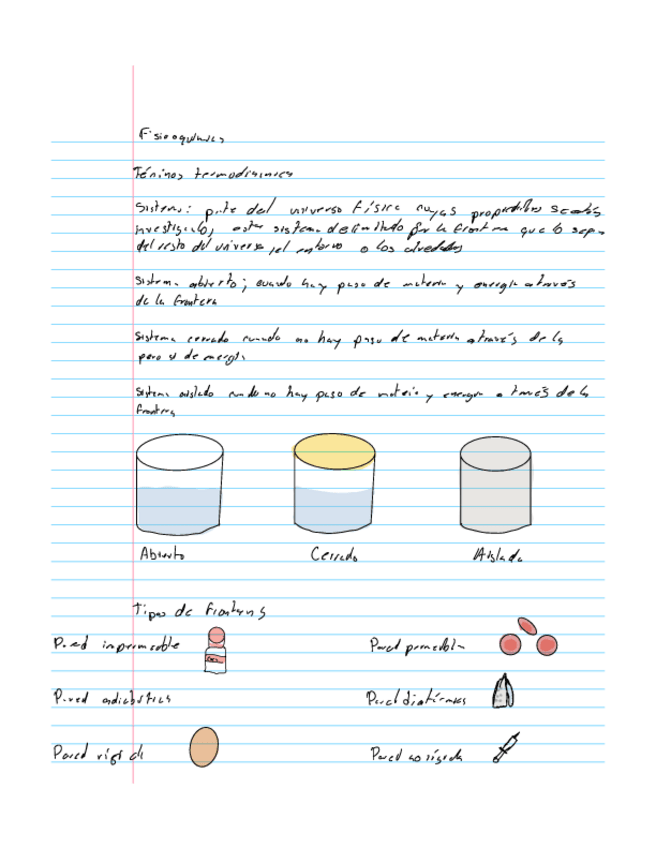 Fisicoquímica
Téninos termodinámica
Sistema: parte del universo física cuyas propiedades se estás
investigando, este sistema delimitado por la frontera que lo sepa
del resto del universo, el entorno o los alrededor
Sistema abierto; cuando hay paso de materia y energía a través
de la frontera
Sistema cerrado cuando no hay paso de materia a través de la
pero si de energía
Sistema aislado cuando no hay paso de materia y energía a través de la
frontera
Abierto Cerrado Aislada
Tipos de fronteras
Pared impermeable Pared permeable
Pared adiabática Pared diatérmica
Pared rígida Pared no rígida